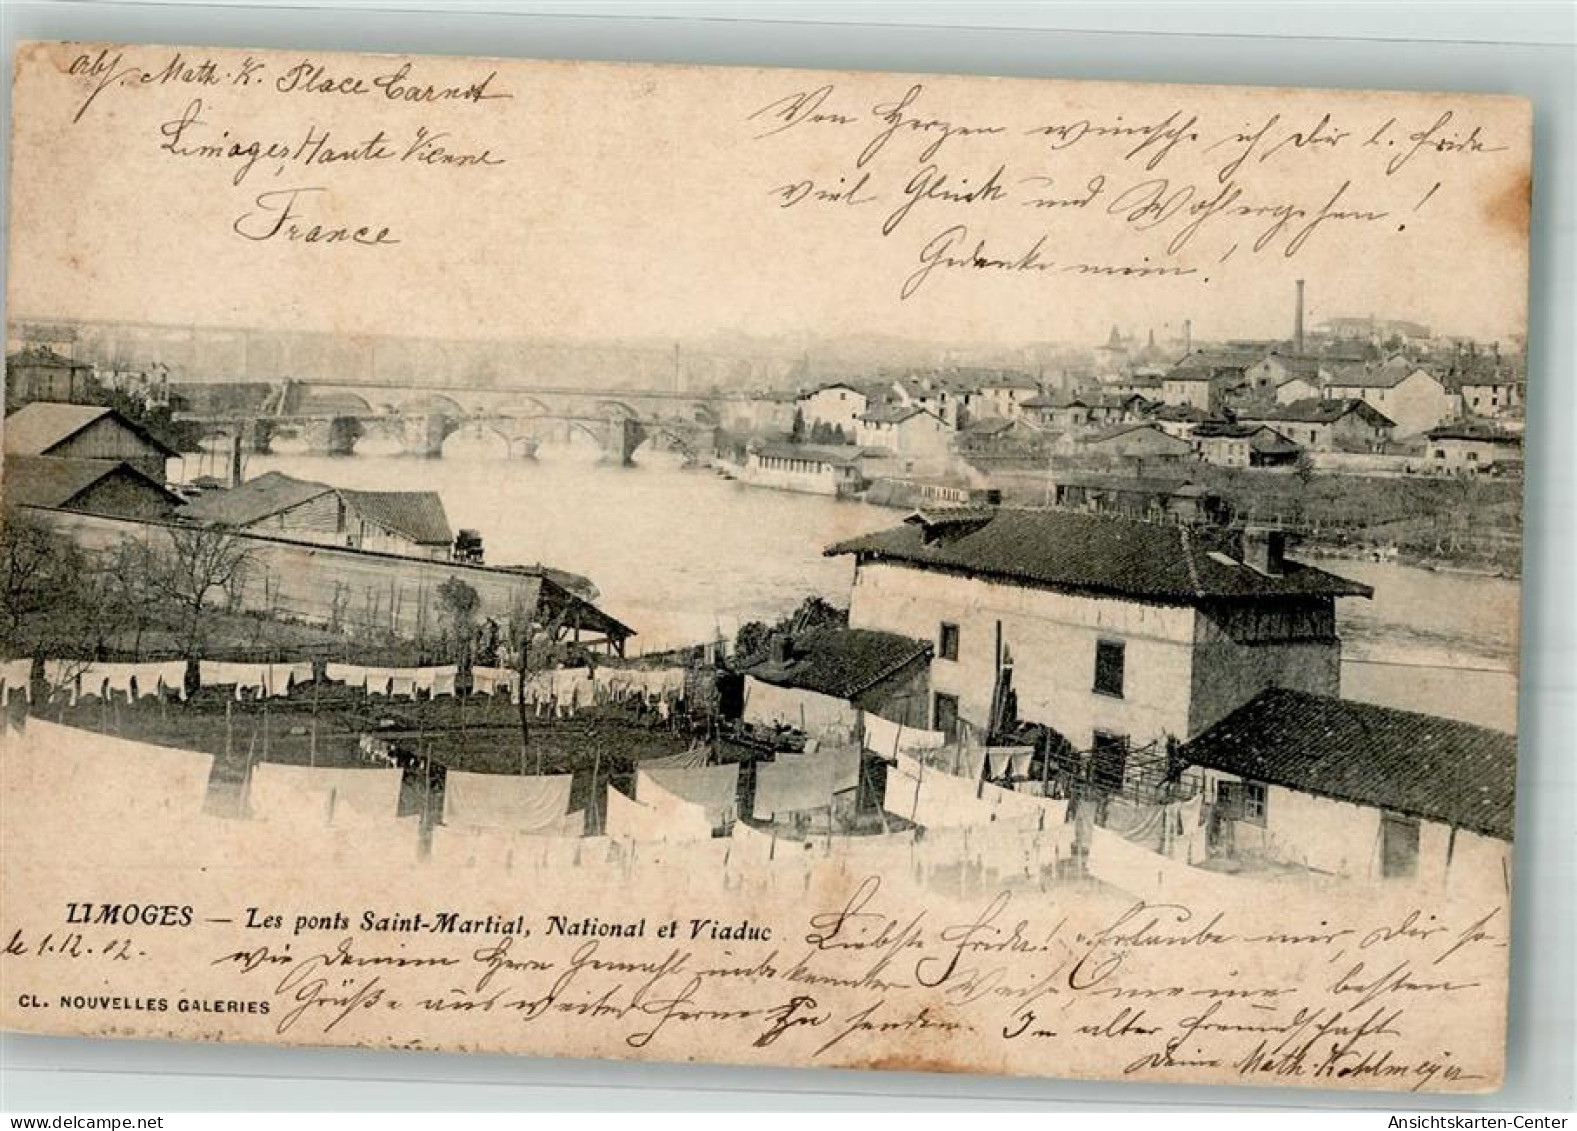 Abs. Math. K. Place Carnot
Limoges, Haute Vienne
France
Von Herzen wünsche ich Dir l. Frida
viel Glück und Wohlergehen!
Gedenke mein!
LIMOGES — Les ponts Saint-Martial, National et Viaduc
le 1.12.02.
CL. NOUVELLES GALERIES
Liebste Frida! Erlaube mir, Dir so-
wie Deinem Herrn Gemahl unbekannter Weise, meine besten
Grüße aus weiter Ferne zu senden. In alter Freundschaft
Deine Math. Kohlmeyer
delcampe.net
Ansichtskarten-Center